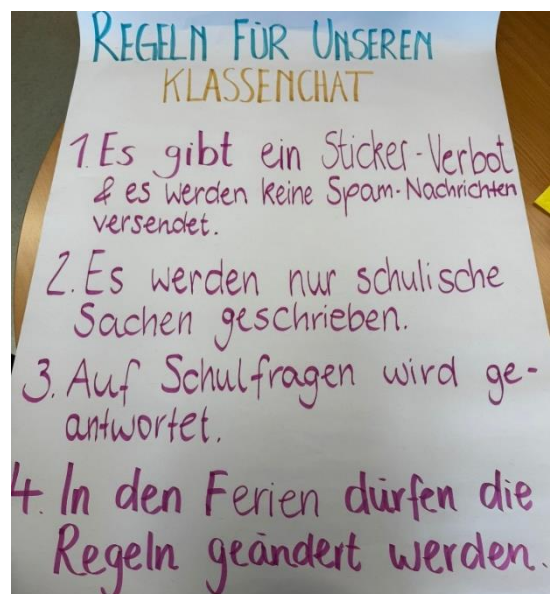 REGELN FÜR UNSEREN
KLASSENCHAT
1. Es gibt ein Sticker-Verbot
& es werden keine Spam-Nachrichten
versendet.
2. Es werden nur schulische
Sachen geschrieben.
3. Auf Schulfragen wird ge-
antwortet.
4. In den Ferien dürfen die
Regeln geändert werden.